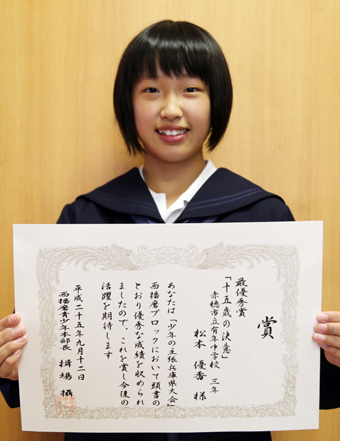 賞
最優秀賞
「十五歳の決意」
赤穂市立有年中学校 三年
松本 優香 様
あなたは「少年の主張兵庫県大会」
西播磨ブロックにおいて頭書の
とおり優秀な成績を収められ
ましたので、これを賞し今後の
活躍を期待します
平成二十五年九月十二日
西播磨青少年本部長